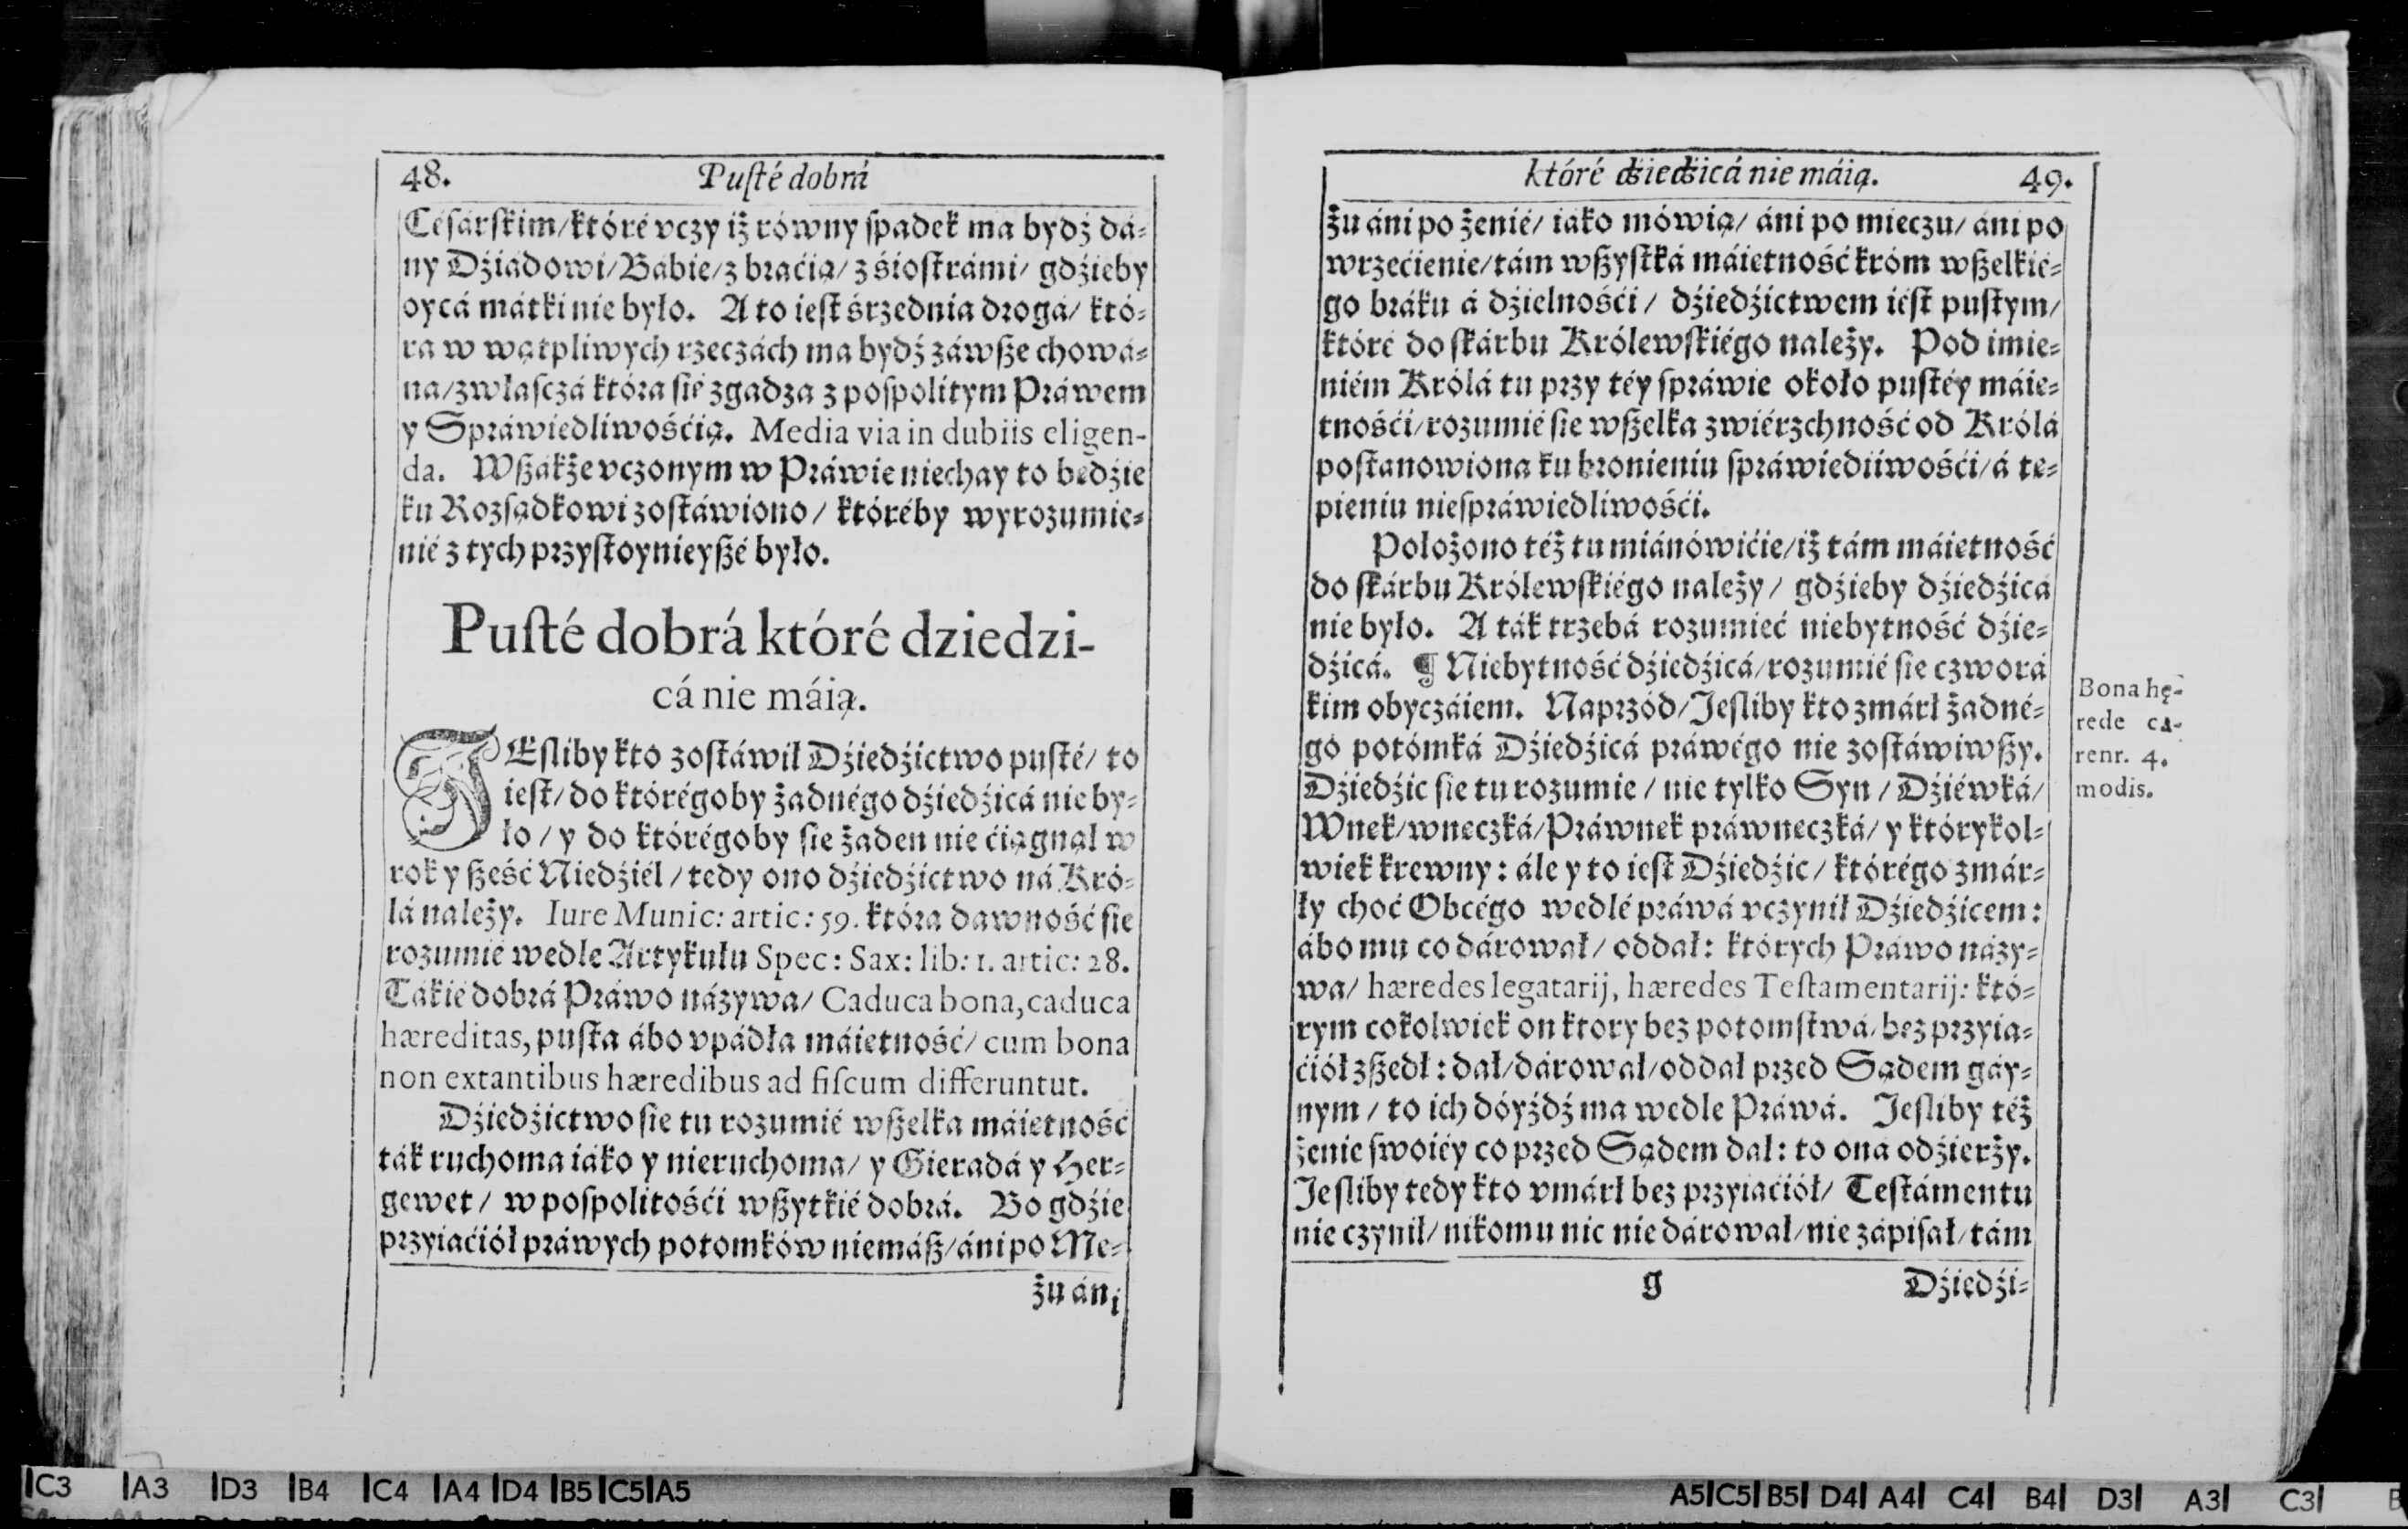 48. Puſté dobrá
Céſárſkim/które vczy iż równy ſpadek ma bydź dá-
ny Dźiádowi/Bábie/z bráćią/z śioſtrámi/ gdźieby
oycá mátki nie było. A to ieſt śrzednia drogá/ któ-
ra w wątpliwych rzeczách ma bydź záwſze chowá-
na/zwłaſczá która ſię zgadza z poſpolitym Práwem
y Spráwiedliwośćią. Media via in dubiis eligen-
da. Wſzákże vczonym w Práwie niechay to będźie
ku Rozſądkowi zoſtáwiono/ któréby wyrozumie-
nié z tych przyſtoynieyſzé było.
Puſté dobrá któré dziedzi-
cá nie máią.
JEſliby kto zoſtáwił Dźiedźictwo puſté/ to
ieſt/ do którégoby żadnégo dźiedźicá nie by-
ło/ y do którégoby ſie żaden nie ćiągnął w
rok y ſześć Niedźiél/ tedy ono dźiedźictwo ná Kró-
lá należy. Iure Munic: artic: 59. która dawność ſie
rozumié wedle Artykułu Spec: Sax: lib: 1. artic: 28.
Tákié dobrá Práwo názywa/ Caduca bona, caduca
hæreditas, puſta ábo vpádła máiętność/ cum bona
non extantibus hæredibus ad fiſcum differuntut.
Dźiedźictwo ſie tu rozumié wſzelka máiętność
ták ruchoma iáko y nieruchoma/ y Gieradá y Her-
gewet/ w poſpolitośći wſzytkié dobrá. Bo gdźie
przyiaćiół práwych potomków niemáſz/ áni po Mę-
żu áni
któré dźiedźicá nie máią. 49.
żu áni po żenié/ iáko mówią/ áni po mieczu/ áni po
wrzećienie/ tám wſzyſtká máiętność króm wſzelkié-
go bráku á dźielnośći/ dźiedźictwem iéſt puſtym/
któré do ſkárbu Królewſkiégo należy. Pod imie-
niém Królá tu przy téy ſpráwie około puſtéy máię-
tnośći/ rozumié ſie wſzelka zwiérzchność od Królá
poſtanowiona ku bronieniu ſpráwiedliwośći/ á tę-
pieniu nieſpráwiedliwośći.
Położono téż tu miánówićie/ iż tám máiętność
do ſkárbu Królewſkiégo należy/ gdźieby dźiedźicá
nie było. A ták trzebá rozumieć niebytność dźie-
dźicá. ¶ Niebytność dźiedźicá/ rozumié ſie czworá
kim obyczáiem. Naprzód/ Jeſliby kto zmárł żadné-
go potómká Dźiedźicá práwégo nie zoſtáwiwſzy.
Dźiedźic ſie tu rozumie/ nie tylko Syn/ Dźiéwká/
Wnęk/ wnęczká/ Práwnęk práwnęczká/ y którykol-
wiek krewny: ále y to ieſt Dźiedźic/ którégo zmár-
ły choć Obcégo wedlé práwá vczynił Dźiedźicem:
ábo mu co dárował/ oddał: których Práwo názy-
wa/ hæredes legatarij, hæredes Teſtamentarij: któ-
rym cokolwiek on ktory bez potomſtwá/ bez przyia-
ćiół zſzedł: dał/ dárował/ oddał przed Sądem gáy-
nym/ to ich dóyźdź ma wedle Práwá. Jeſliby téż
żenie ſwoiéy co przed Sądem dał: to oná odźierży.
Jeſliby tedy kto vmárł bez przyiaćiół/ Teſtámentu
nie czynił/ nikomu nic nie dárował/ nie zápiſał/ tám
g Dźiedźi-
Bona hę-
rede ca-
renr. 4.
modis.
C3 A3 D3 B4 C4 A4 D4 B5 C5 A5
A5 C5 B5 D4 A4 C4 B4 D3 A3 C3 B